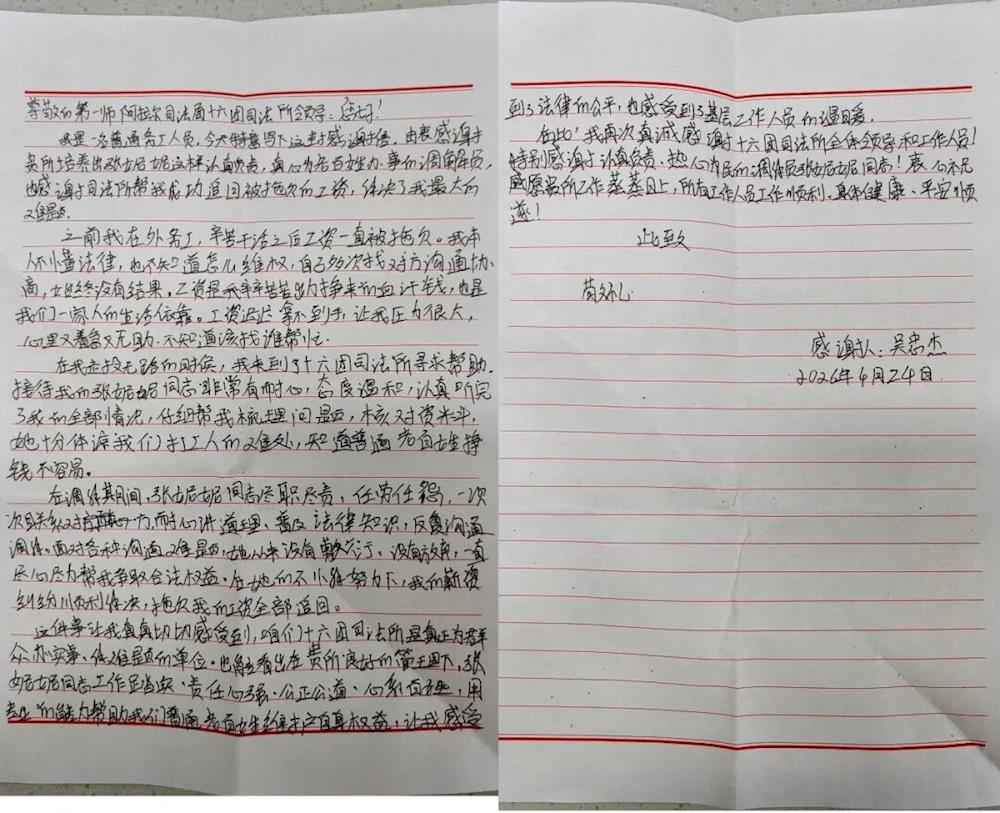 尊敬的第一师阿拉尔司法局十六团司法所领导：您好！
我是一名普通务工人员，今天特意写下这封感谢信，由衷感谢
贵所培养出张妮妮这样认真负责，真心为老百姓办事的调解员，
也感谢司法所帮我成功追回被拖欠的工资，解决了我最大的
难题。
之前我在外务工，辛苦干活之后工资一直被拖欠。我本
人不懂法律，也不知道怎么维权，自己多次找对方沟通协
商，始终没有结果。工资是我辛辛苦苦出力挣来的血汗钱，也是
我们一家人的生活依靠。工资迟迟拿不到手，让我压力很大，
心里又着急又无助，不知道该找谁帮忙。
在我走投无路的时候，我来到了十六团司法所寻求帮助。
接待我的张妮妮同志非常有耐心，态度温和，认真听完
了我的全部情况，仔细帮我梳理问题，核对资料，
她十分体谅我们打工人的难处，知道普通老百姓挣
钱不容易。
在调解期间，张妮妮同志尽职尽责、任劳任怨，一次
次联系对方，耐心讲道理、普及法律知识，反复沟通
调解。面对各种沟通难题，她从来没有敷衍，没有放弃，一直
尽心尽力帮我争取合法权益。在她的不懈努力下，我的薪资
纠纷顺利解决，拖欠我的工资全部追回。
这件事让我真真切切感受到，咱们十六团司法所是真正为群
众办实事、解难题的单位。也能看出在贵所良好的管理下，张
妮妮同志工作足踏实、责任心强、公正公道、心系百姓，用
专业的能力帮助我们普通老百姓维护自身权益，让我感受
到了法律的公平，也感受到了基层工作人员的温暖。
在此，我再次真诚感谢十六团司法所全体领导和工作人员！
特别感谢认真负责、热心为民的调解员张妮妮同志！衷心祝
愿贵所工作蒸蒸日上，所有工作人员工作顺利、身体健康、平安顺
遂！
此致
敬礼
感谢人：吴忠杰
2026年4月24日